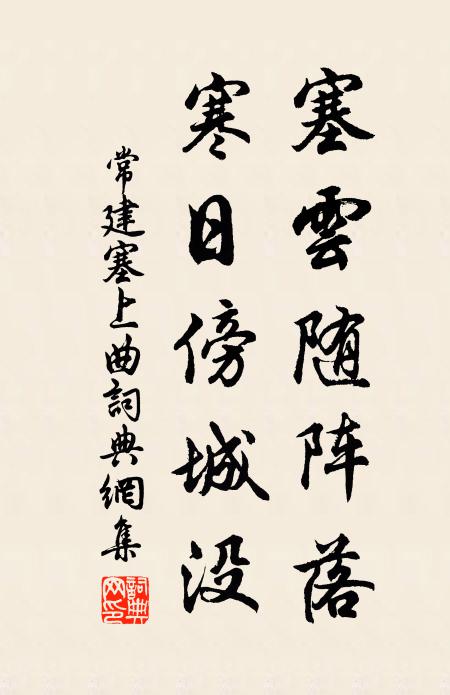 塞雲随阵落
寒日傍城没
常建塞上曲詞典網集
詞典網印